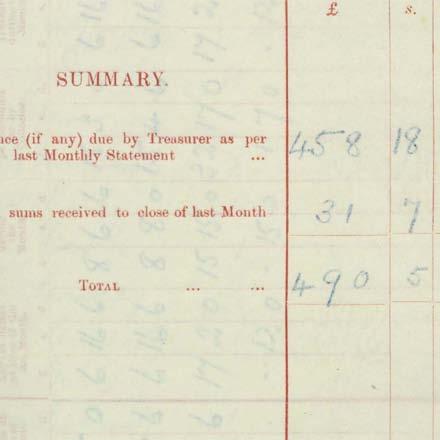 £ s.
SUMMARY.
nce (if any) due by Treasurer as per
last Monthly Statement ... 458 18
sums received to close of last Month 31 7
TOTAL ... ... 490 5